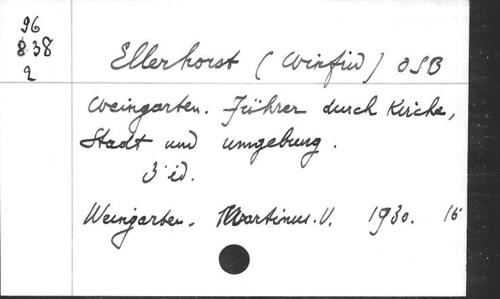 96
838
2
Ellerhorst (Winfrid) OSB
Weingarten. Führer durch Kirche,
Stadt und Umgebung.
3 éd.
Weingarten. Martinus. V. 1930. 16